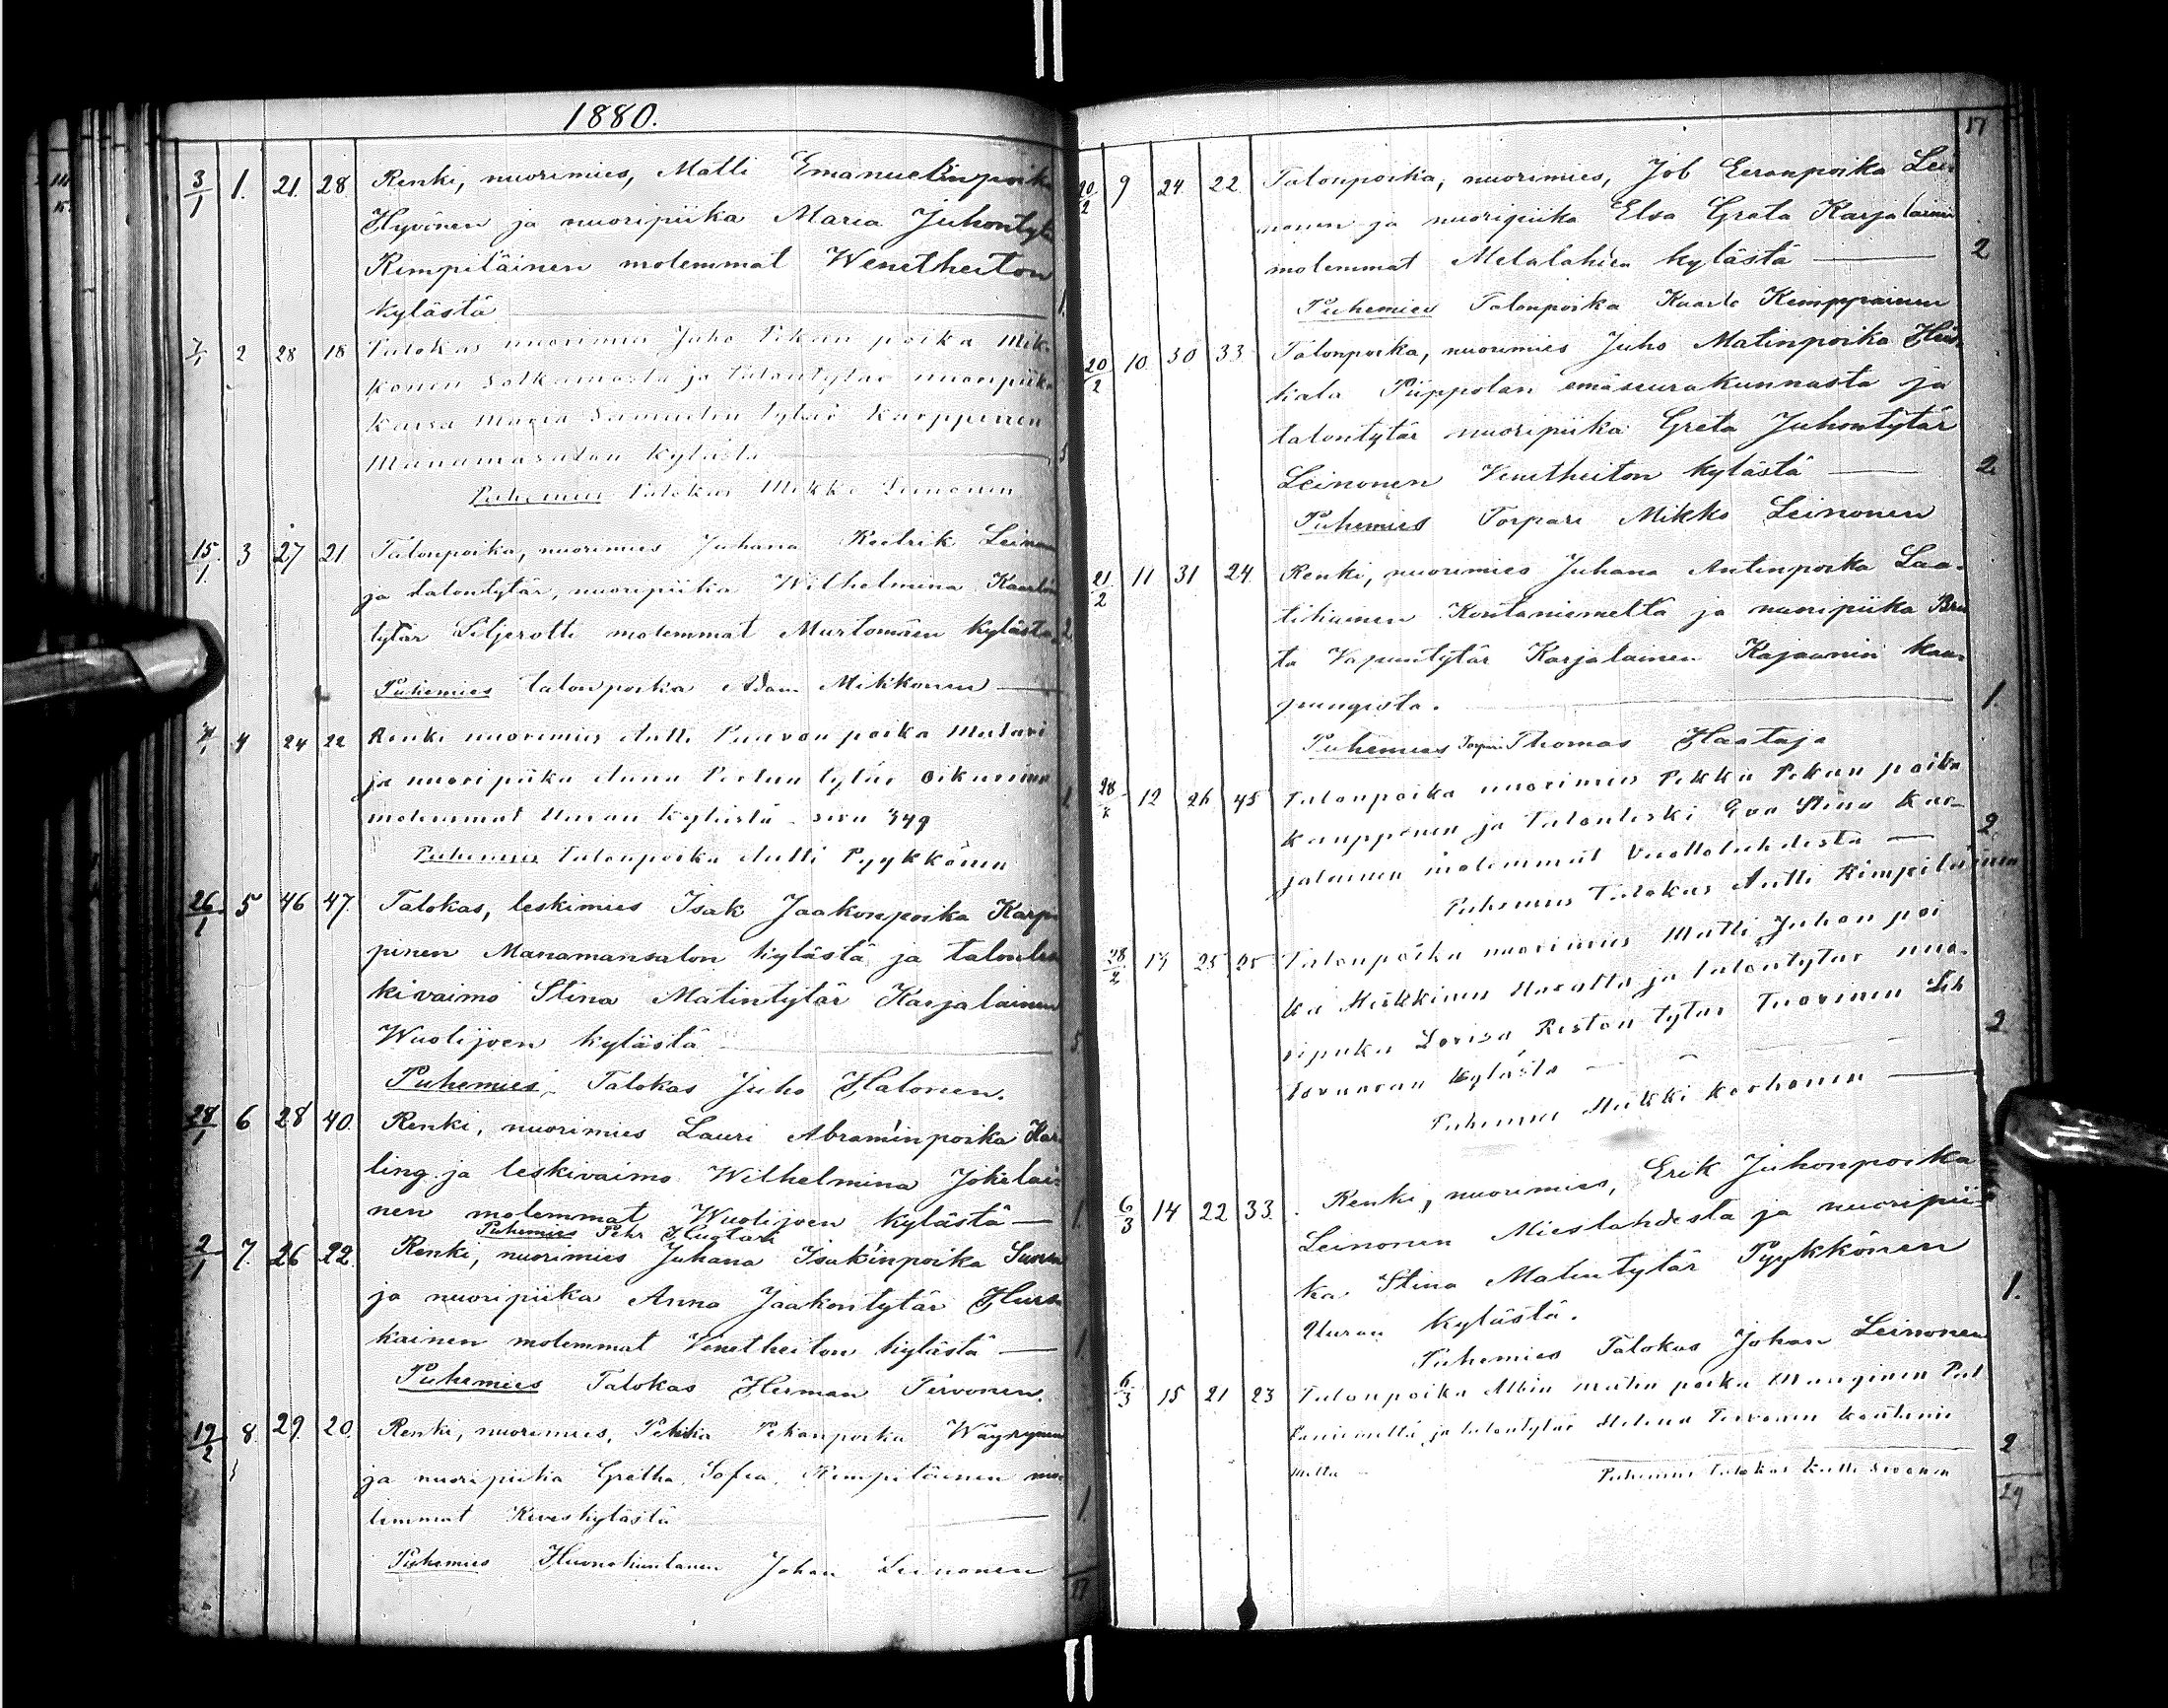 1880.
3/1 1. 21. 28. Renki, nuorimies, Matti Emanuelinpoika
Hyvönen ja nuoripiika Maria Juhontytär
Kimpiläinen molemmat Wenetheiton
kylästä 1.
7/1 2 28 18 Talokas nuorimies Juho Pekan poika Mik-
konen Sotkamosta ja talontytär nuoripiika
Kaisa Maria Samuelin tytär Karppinen
Manamasalon kylästä 5
Puhemies Talokas Mikko Leinonen
15/1 3 27 21 Talonpoika, nuorimies Juhana Leinonen
ja talontytär, nuoripiika Wilhelmina Kaarlon
tytär Liljerotti molemmat Murtomäen kylästä 2
Puhemies talonpoika Adam Mikkonen
4 24 22 Renki nuorimies Antti Paavon poika
ja nuoripiika Anna tytär Oikarinen
molemmat Uuran kylästä sivu 349
Puhemies Talonpoika Antti Pyykkönen
26/1 5 46 47. Talokas, leskimies Isak Jaakonpoika Karp-
pinen Manamansalon kylästä ja talonles-
kivaimo Stina Matintytär Karjalainen
Wuolijoen kylästä 5
Puhemies, Talokas Juho Halonen.
28/1 6 28 40. Renki, nuorimies Lauri Abram'inpoika Har-
ling ja leskivaimo Wilhelmina Jokelai-
nen molemmat Wuolijoen kylästä 1.
Puhemies Pehr Huotari
2/1 7. 26 22. Renki, nuorimies Juhana Isak'inpoika
ja nuoripiika Anna Jaakontytär Hurs-
kainen molemmat Venetheiton kylästä 1
Puhemies Talokas Herman Tervonen.
19/2 8. 29. 20. Renki, nuorimies, Pekka Pekanpoika Wäyrynen
ja nuoripiika Gretha Sofia Kimpiläinen mo-
lemmat Kiveskylästä 1.
Puhemies Huonekuntanen Johan Leinonen
17
17
20/2 9 24. 22. Talonpoika, nuorimies, Job Eeronpoika Lei-
nonen ja nuoripiika Elsa Greta Karjalainen
molemmat Melalahden kylästä 2
Puhemies Talonpoika Kaarlo Kemppainen
20/2 10. 30 33. Talonpoika, nuorimies Juho Matinpoika
Piippolan emäseurakunnasta ja
talontytär nuoripiika Greta Juhontytär
Leinonen Venetheiton kylästä 2.
Puhemies Torpari Mikko Leinonen
21/2 11 31 24. Renki, nuorimies Juhana Antinpoika Laa-
tikainen Kontaniemeltä ja nuoripiika Bri-
ta Vapuntytär Karjalainen Kajaanin kau-
pungista. 1
Puhemies Torpari Thomas Haataja
28/2 12 26 45 Talonpoika nuorimies Pekka Pekan poika
Kauppinen ja Talonleski Eva Stina Kar-
jalainen molemmat Vuottolahdesta 2.
Puhemies Talokas Antti Kimpiläinen
28/2 13 25 25 Talonpoika nuorimies Matti Juhon poi
ka Heikkinen ja talontytär nuo-
ripiika Lovisa Ristontytär Tuovinen
kylästä 2
Puhemies Heikki Korhonen
6/3 14 22 33. Renki, nuorimies, Erik Juhonpoika
Leinonen Mieslahdesta ja nuoripii-
ka Stina Matintytär Pyykkönen
Uuran kylästä. 1.
Puhemies Talokas Johan Leinonen
6/3 15 21 23 Talonpoika Albin Matin poika Manninen Pal
taniemeltä ja talontytär Helena Tervonen Kontanie
meltä 2
Puhemies Talokas
29